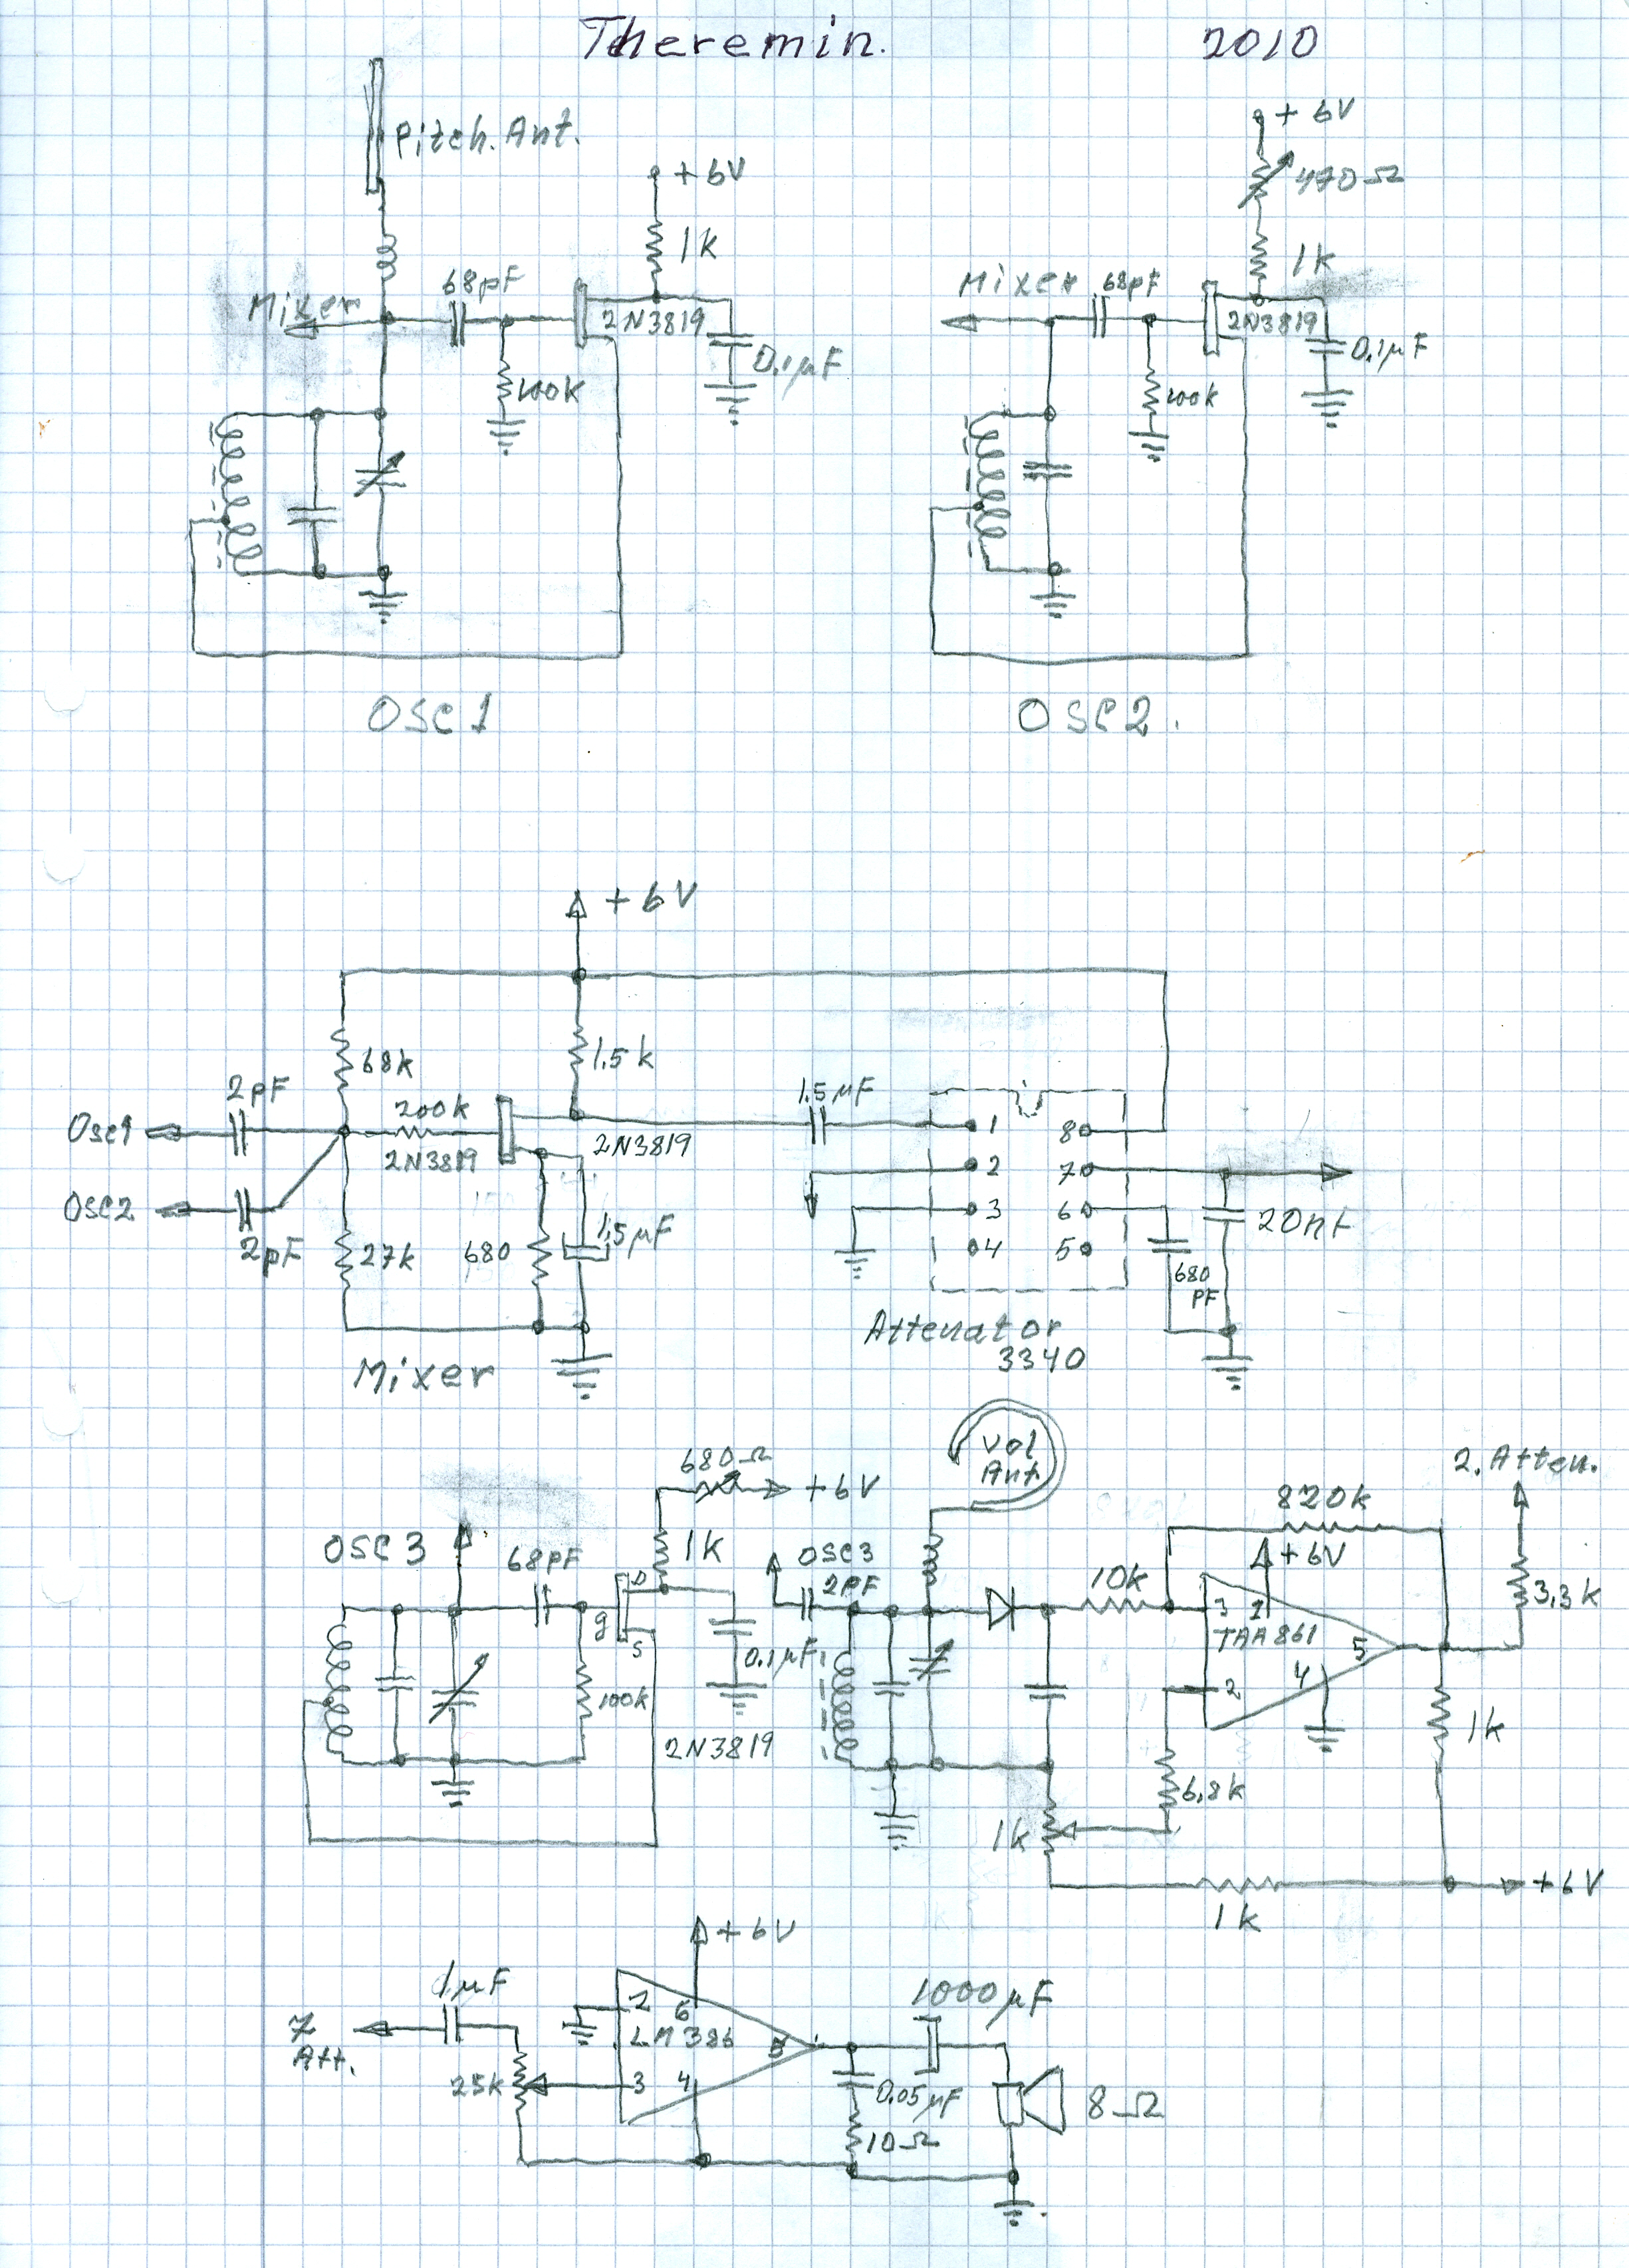 Theremin. 2010
Pitch. Ant.
+ 6V
1k
68pF
Mixer
2N3819
0.1µF
100k
OSC 1
+ 6V
470Ω
1k
Mixer
68pF
2N3819
0.1µF
100k
OSC 2.
+ 6V
68k
1.5k
2pF
200k
1.5 µF
Osc1
2N3819
2N3819
OSC2
2pF
27k
680
1.5µF
1
2
3
4
8
7
6
5
20nF
680
PF
Attenator
3340
Mixer
680Ω
+6V
OSC 3
68PF
1k
D
g
S
0.1µF
100k
2N3819
Vol
Ant.
OSC3
2PF
10k
820k
+6V
2. Atten.
3
1
TAA861
5
4
2
3,3k
1k
6,8k
1k
+6V
1k
+6V
1µF
7
Att.
25k
2
6
LM386
5
3
4
1000µF
0.05µF
10Ω
8Ω